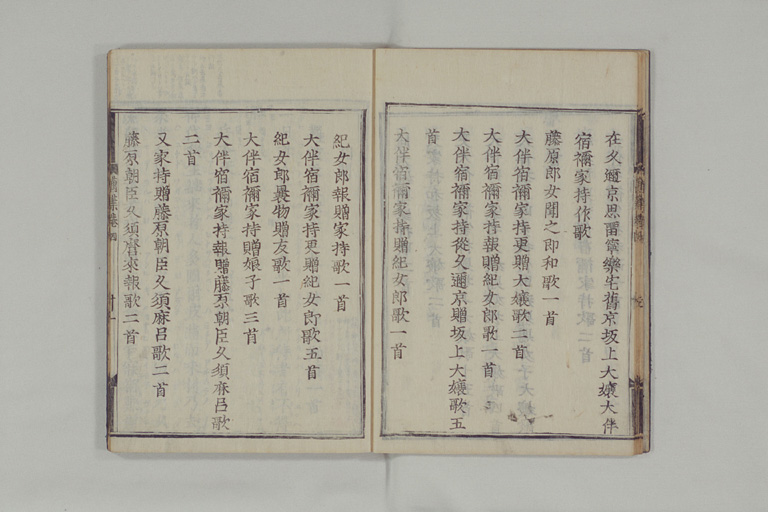 在久邇京思留寧樂宅舊京坂上大孃大伴
宿禰家持作歌
藤原郎女聞之即和歌一首
大伴宿禰家持更贈大孃歌二首
大伴宿禰家持報贈紀女郎歌一首
大伴宿禰家持從久邇京贈坂上大孃歌五
首
大伴宿禰家持贈紀女郎歌一首
紀女郎報贈家持歌一首
大伴宿禰家持更贈紀女郎歌五首
紀女郎裹物贈友歌一首
大伴宿禰家持贈娘子歌三首
大伴宿禰家持報贈藤原朝臣久須麻呂歌
二首
又家持贈藤原朝臣久須麻呂歌二首
藤原朝臣久須麿來報歌二首